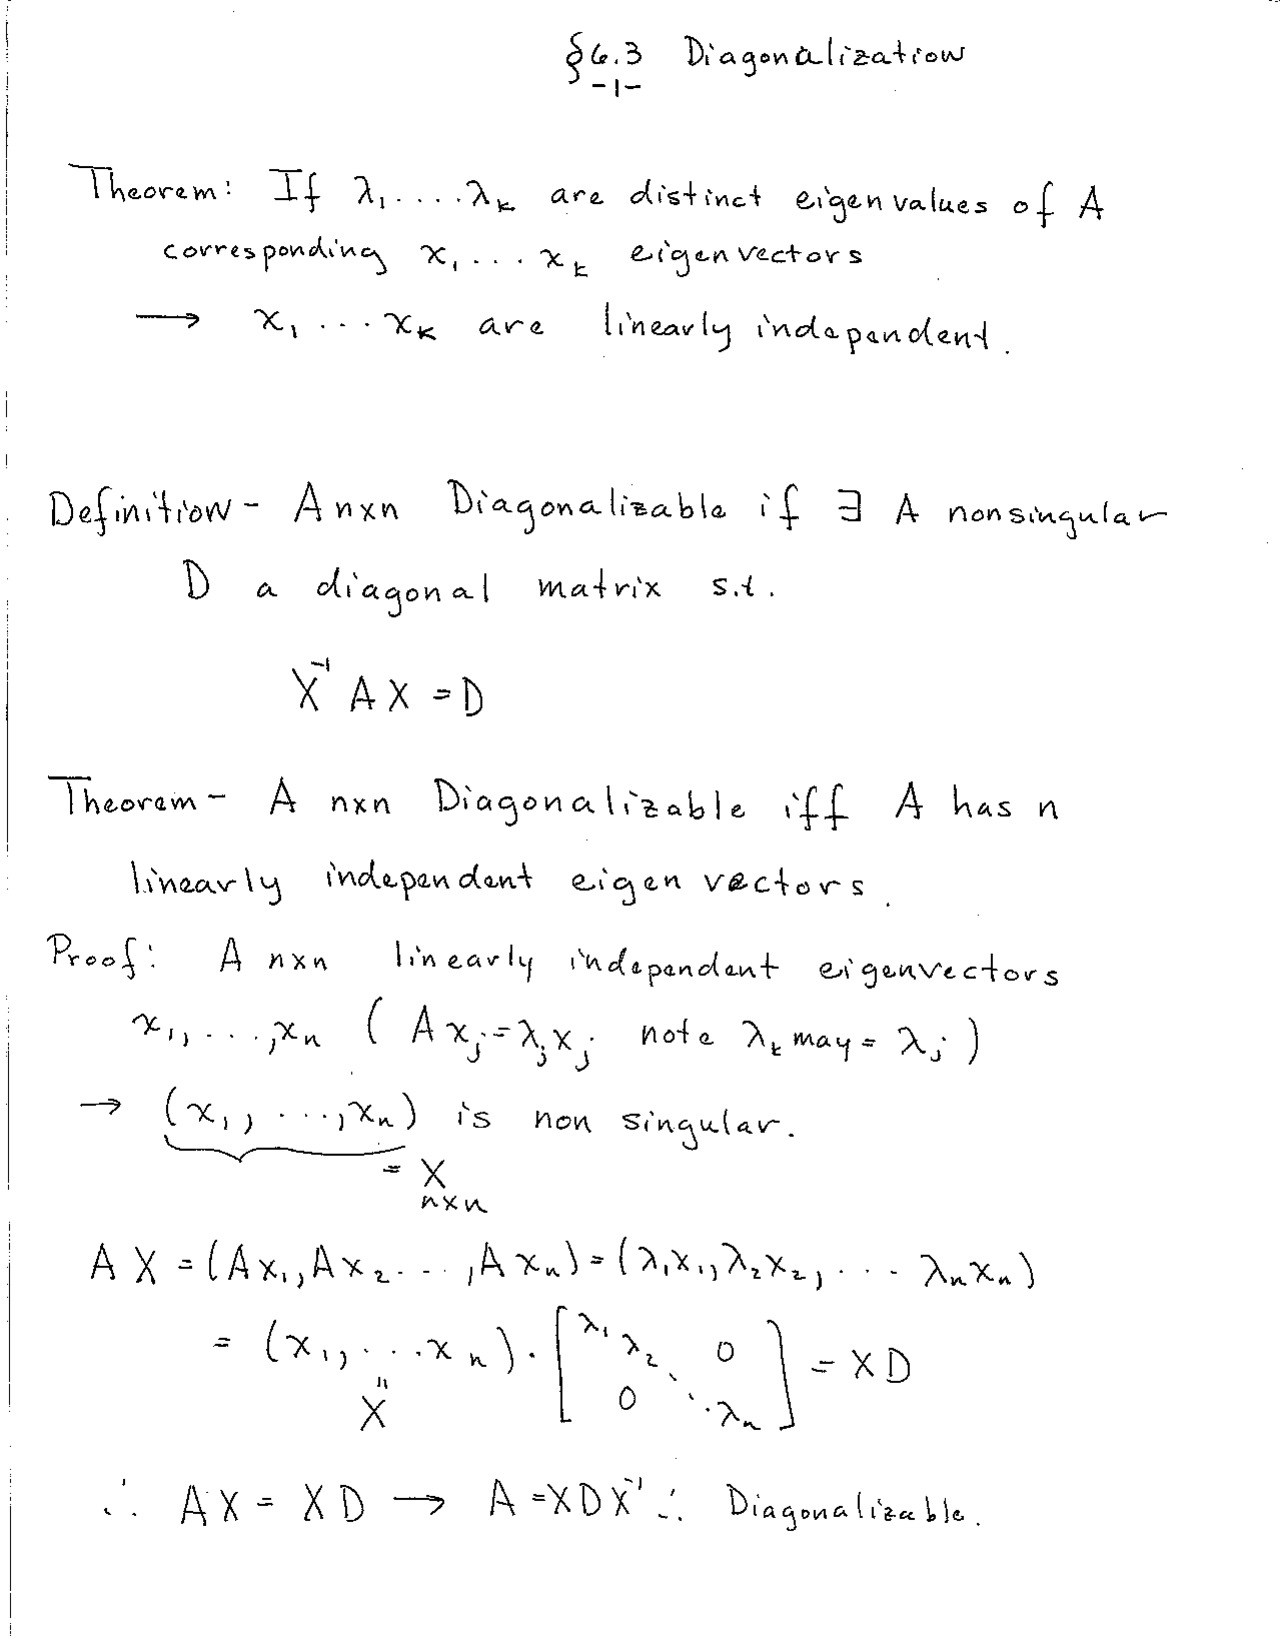 §6.3 Diagonalization
-1-
Theorem: If λ₁....λₖ are distinct eigenvalues of A
corresponding x₁...xₖ eigenvectors
→ x₁...xₖ are linearly independent.
Definition - A nxn Diagonalizable if ∃ A nonsingular
D a diagonal matrix s.t.
X⁻¹AX = D
Theorem - A nxn Diagonalizable iff A has n
linearly independent eigen vectors.
Proof: A nxn linearly independent eigenvectors
x₁,...,xₙ ( Axⱼ=λⱼxⱼ note λₖ may = λⱼ )
→ (x₁, ...,xₙ) is non singular.
= X
nxn
AX = (Ax₁,Ax₂...,Axₙ)=(λ₁x₁,λ₂x₂,... λₙxₙ)
= (x₁,...xₙ)·[λ₁ λ₂ 0 0 ⋱ λₙ] = XD
"
X
∴ AX = XD → A=XDX⁻¹ ∴ Diagonalizable.